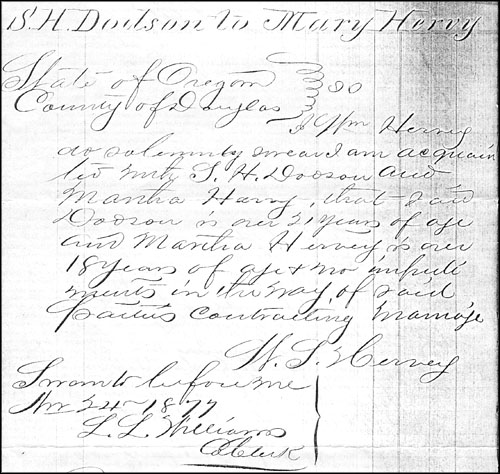 S. H. Dodson to Mary Hervy
State of Oregon
County of Douglas } SS
I Wm Hervey
do solemnly swear I am acquain
ted with S. H. Dodson and
Martha Harvy, that said
Dodson is over 21 years of age
and Martha Hervey is over
18 years of age & no impedi
ments in the way of said
parties contracting marriage
W. S. Hervey
Sworn to before me
Nov 24th 1877
L. L. Williams
Co Clerk